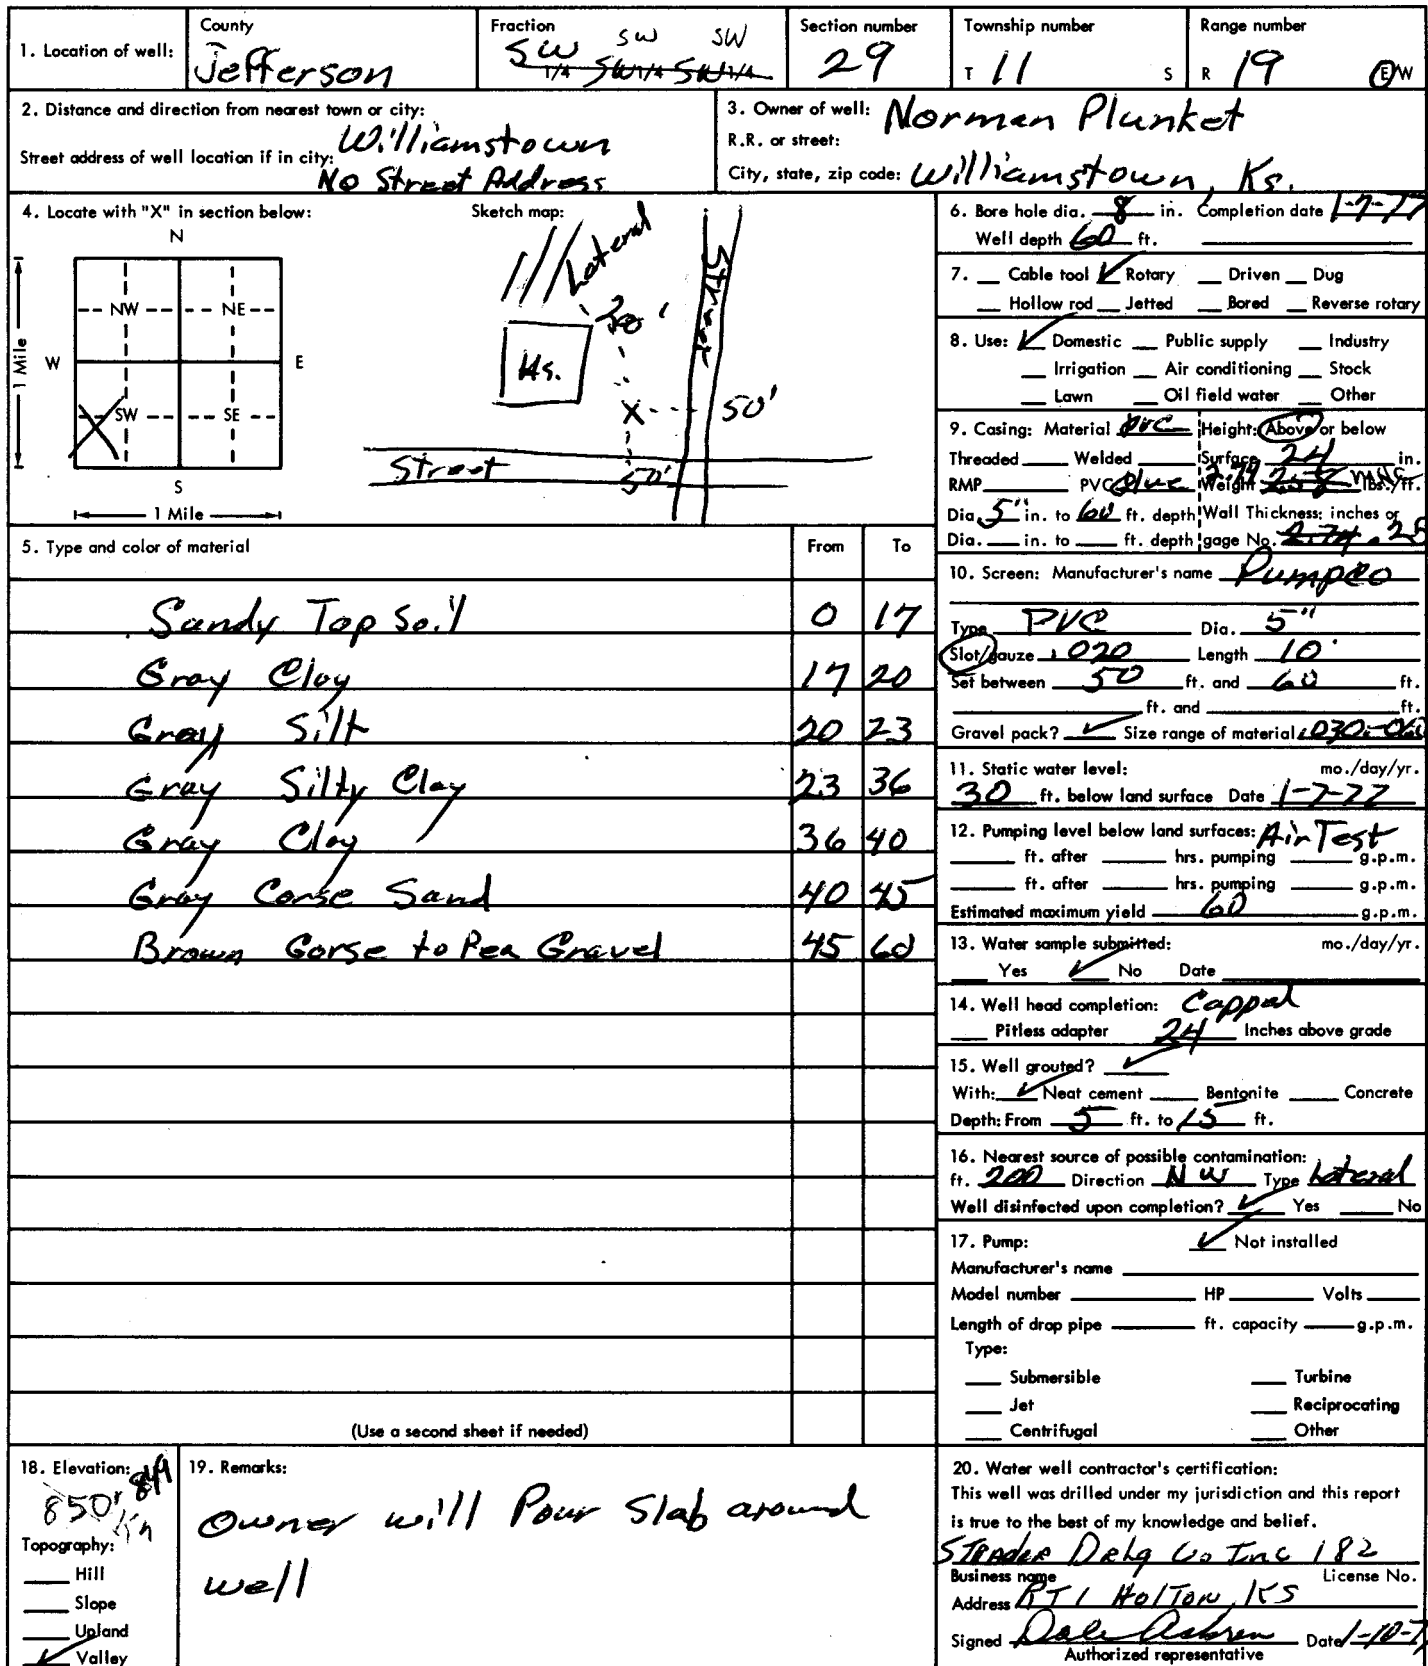 1. Location of well: County Jefferson Fraction SW SW SW 1/4 SW 1/4 SW 1/4 Section number 29 Township number T 11 S Range number R 19 E/W
2. Distance and direction from nearest town or city: Williamstown
Street address of well location if in city: No Street Address
3. Owner of well: Norman Plunket
R.R. or street:
City, state, zip code: Williamstown, Ks.
4. Locate with "X" in section below:
N
NW NE
W E
1 Mile
X SW SE
S
1 Mile
Sketch map:
Lateral
Street
Hs.
X 50'
Street 50'
5. Type and color of material From To
Sandy Top Soil 0 17
Gray Clay 17 20
Gray Silt 20 23
Gray Silty Clay 23 36
Gray Clay 36 40
Gray Corse Sand 40 45
Brown Corse to Pea Gravel 45 60
(Use a second sheet if needed)
6. Bore hole dia. 8 in. Completion date 1-7-77
Well depth 60 ft.
7. Cable tool Rotary Driven Dug
Hollow rod Jetted Bored Reverse rotary
8. Use: Domestic Public supply Industry
Irrigation Air conditioning Stock
Lawn Oil field water Other
9. Casing: Material PVC Height: Above or below
Threaded Welded Surface 24 in.
RMP PVC Weight lbs./ft.
Dia. 5" in. to 60 ft. depth Wall Thickness: inches or
Dia. in. to ft. depth gage No. 2.74 .25
10. Screen: Manufacturer's name Pumpco
Type PVC Dia. 5"
Slot/gauze .020 Length 10'
Set between 50 ft. and 60 ft.
ft. and ft.
Gravel pack? Size range of material .030-.060
11. Static water level: mo./day/yr.
30 ft. below land surface Date 1-7-77
12. Pumping level below land surfaces: Air Test
ft. after hrs. pumping g.p.m.
ft. after hrs. pumping g.p.m.
Estimated maximum yield 60 g.p.m.
13. Water sample submitted: mo./day/yr.
Yes No Date
14. Well head completion: Capped
Pitless adapter 24 Inches above grade
15. Well grouted?
With: Neat cement Bentonite Concrete
Depth: From 5 ft. to 15 ft.
16. Nearest source of possible contamination:
ft. 200 Direction NW Type Lateral
Well disinfected upon completion? Yes No
17. Pump: Not installed
Manufacturer's name
Model number HP Volts
Length of drop pipe ft. capacity g.p.m.
Type:
Submersible Turbine
Jet Reciprocating
Centrifugal Other
18. Elevation: 849
850'
Topography:
Hill
Slope
Upland
Valley
19. Remarks:
Owner will Pour Slab around
well
20. Water well contractor's certification:
This well was drilled under my jurisdiction and this report
is true to the best of my knowledge and belief.
Strader Drlg Co Inc 182
Business name License No.
Address RT 1 Holton, KS
Signed Dale Date 1-10-7
Authorized representative